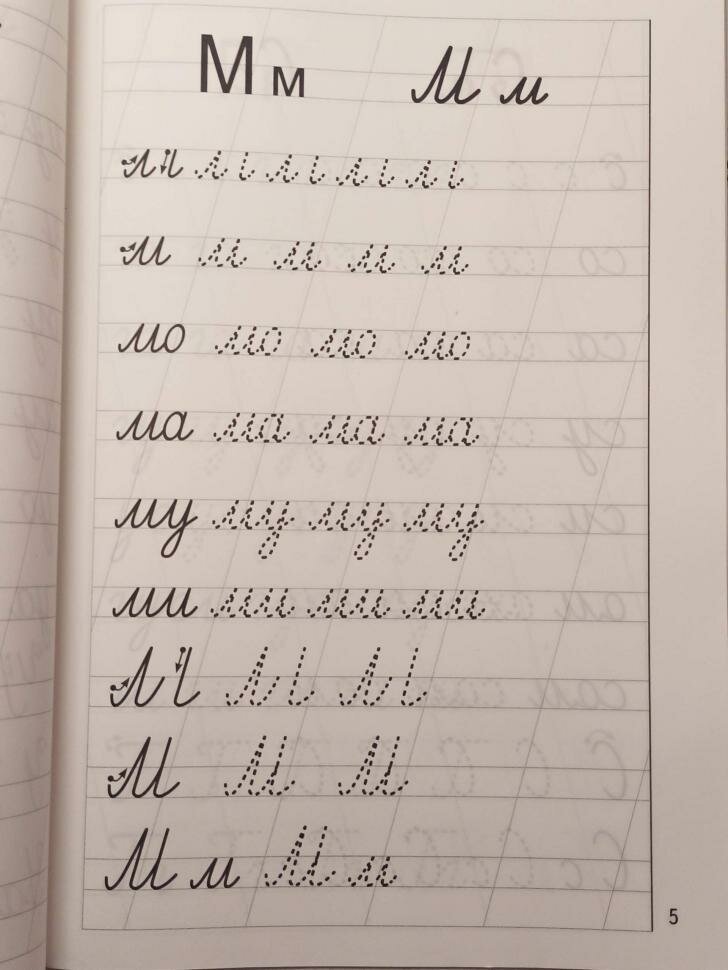 М м М м
м м м м м
м м м м м
мо мо мо мо
ма ма ма ма
му му му му
ми ми ми ми
М М М
М М М
М м М м
5